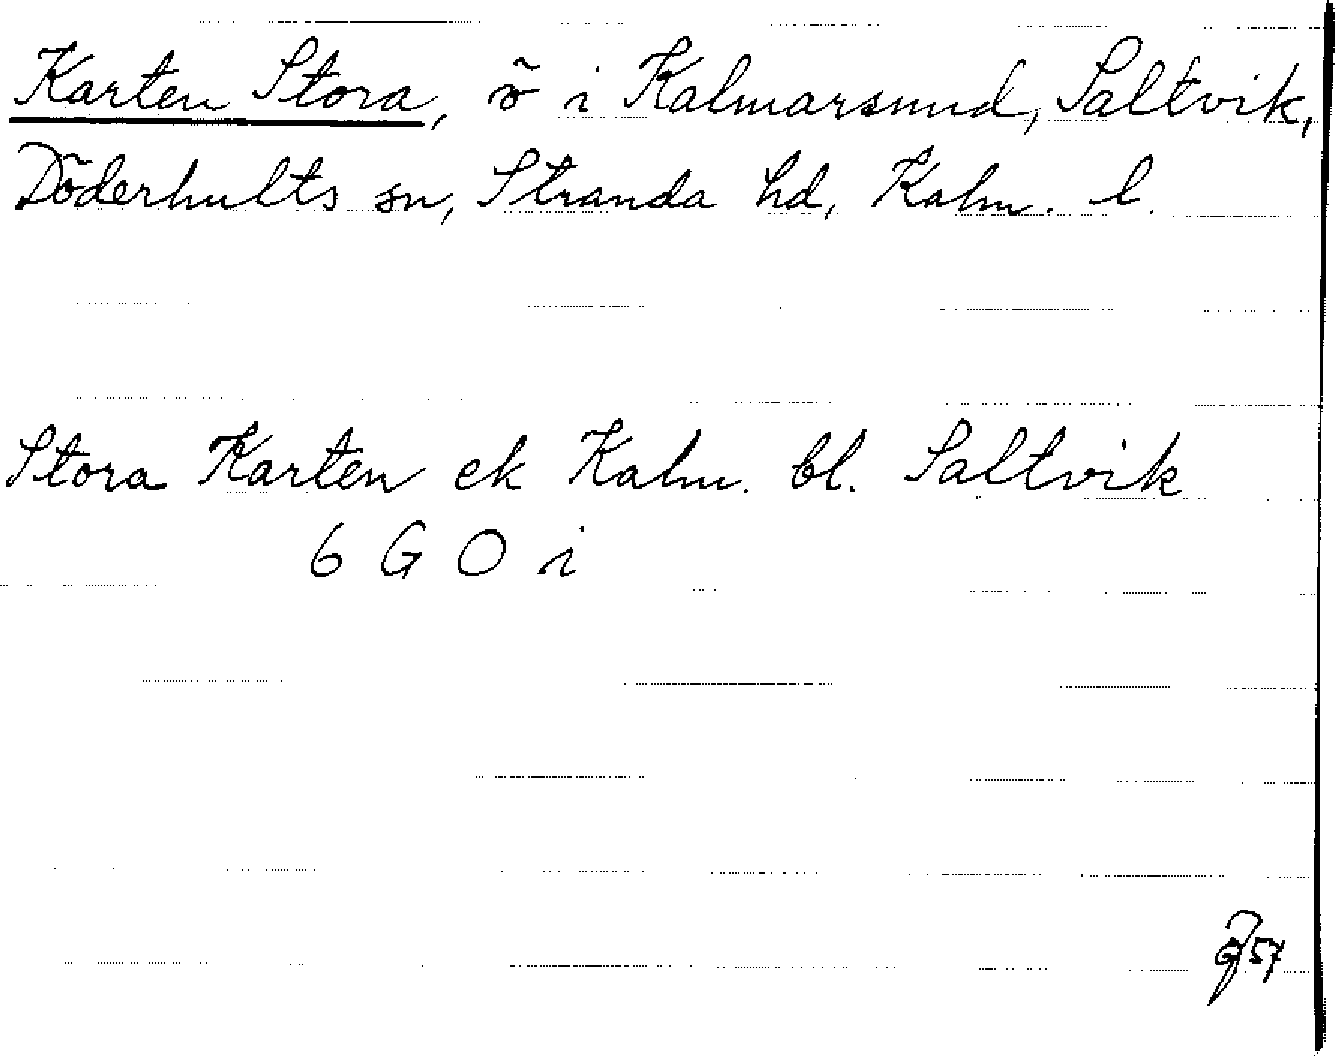 Karten Stora, ö i Kalmarsund, Saltvik,
Döderhults sn, Stranda hd, Kalm. l.
Stora Karten ek Kalm. bl. Saltvik
6 G O i
57